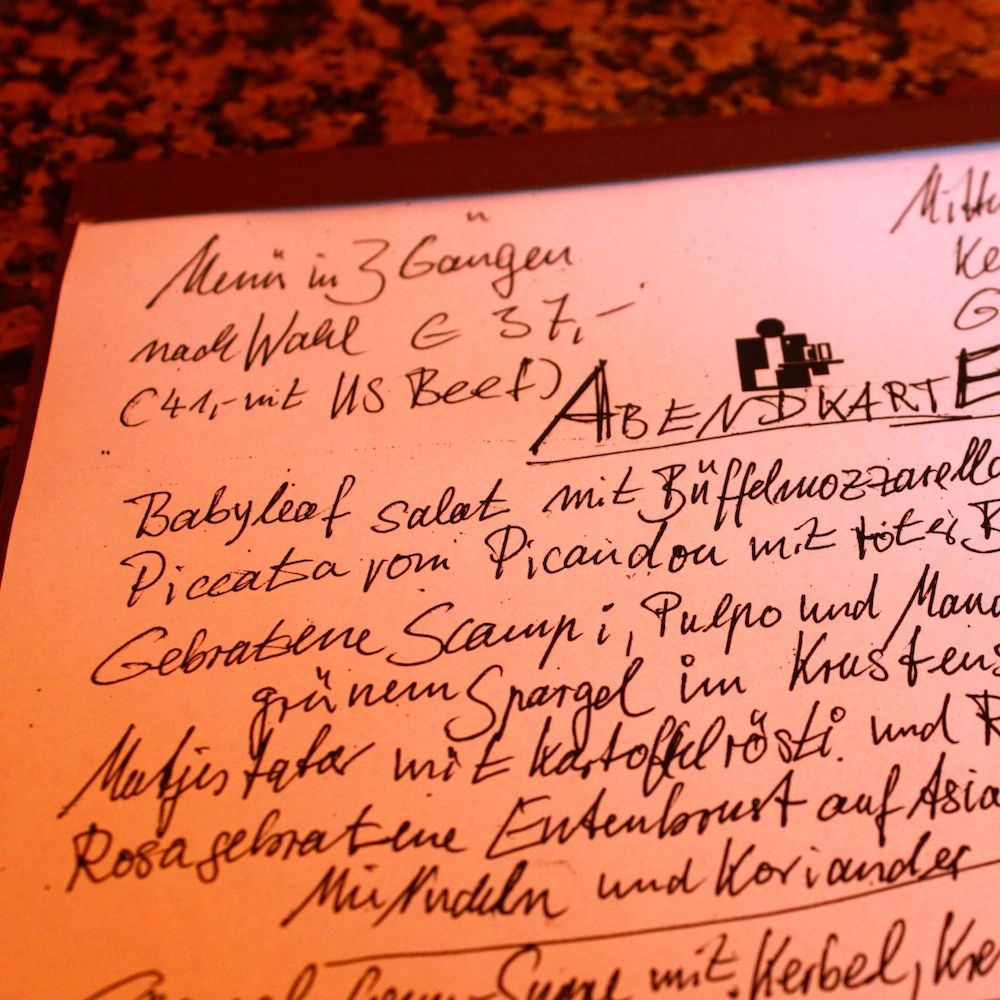 Menü in 3 Gängen
nach Wahl € 37,-
(41,- mit US Beef)
ABENDKARTE
Babyleaf salat mit Büffelmozzarella
Piccata vom Picandou mit roter
Gebratene Scampi, Pulpo und
grünem Spargel im
Matjestatar mit Kartoffelrösti und
Rosagebratene Entenbrust auf
Mie Nudeln und Koriander
mit Kerbel,